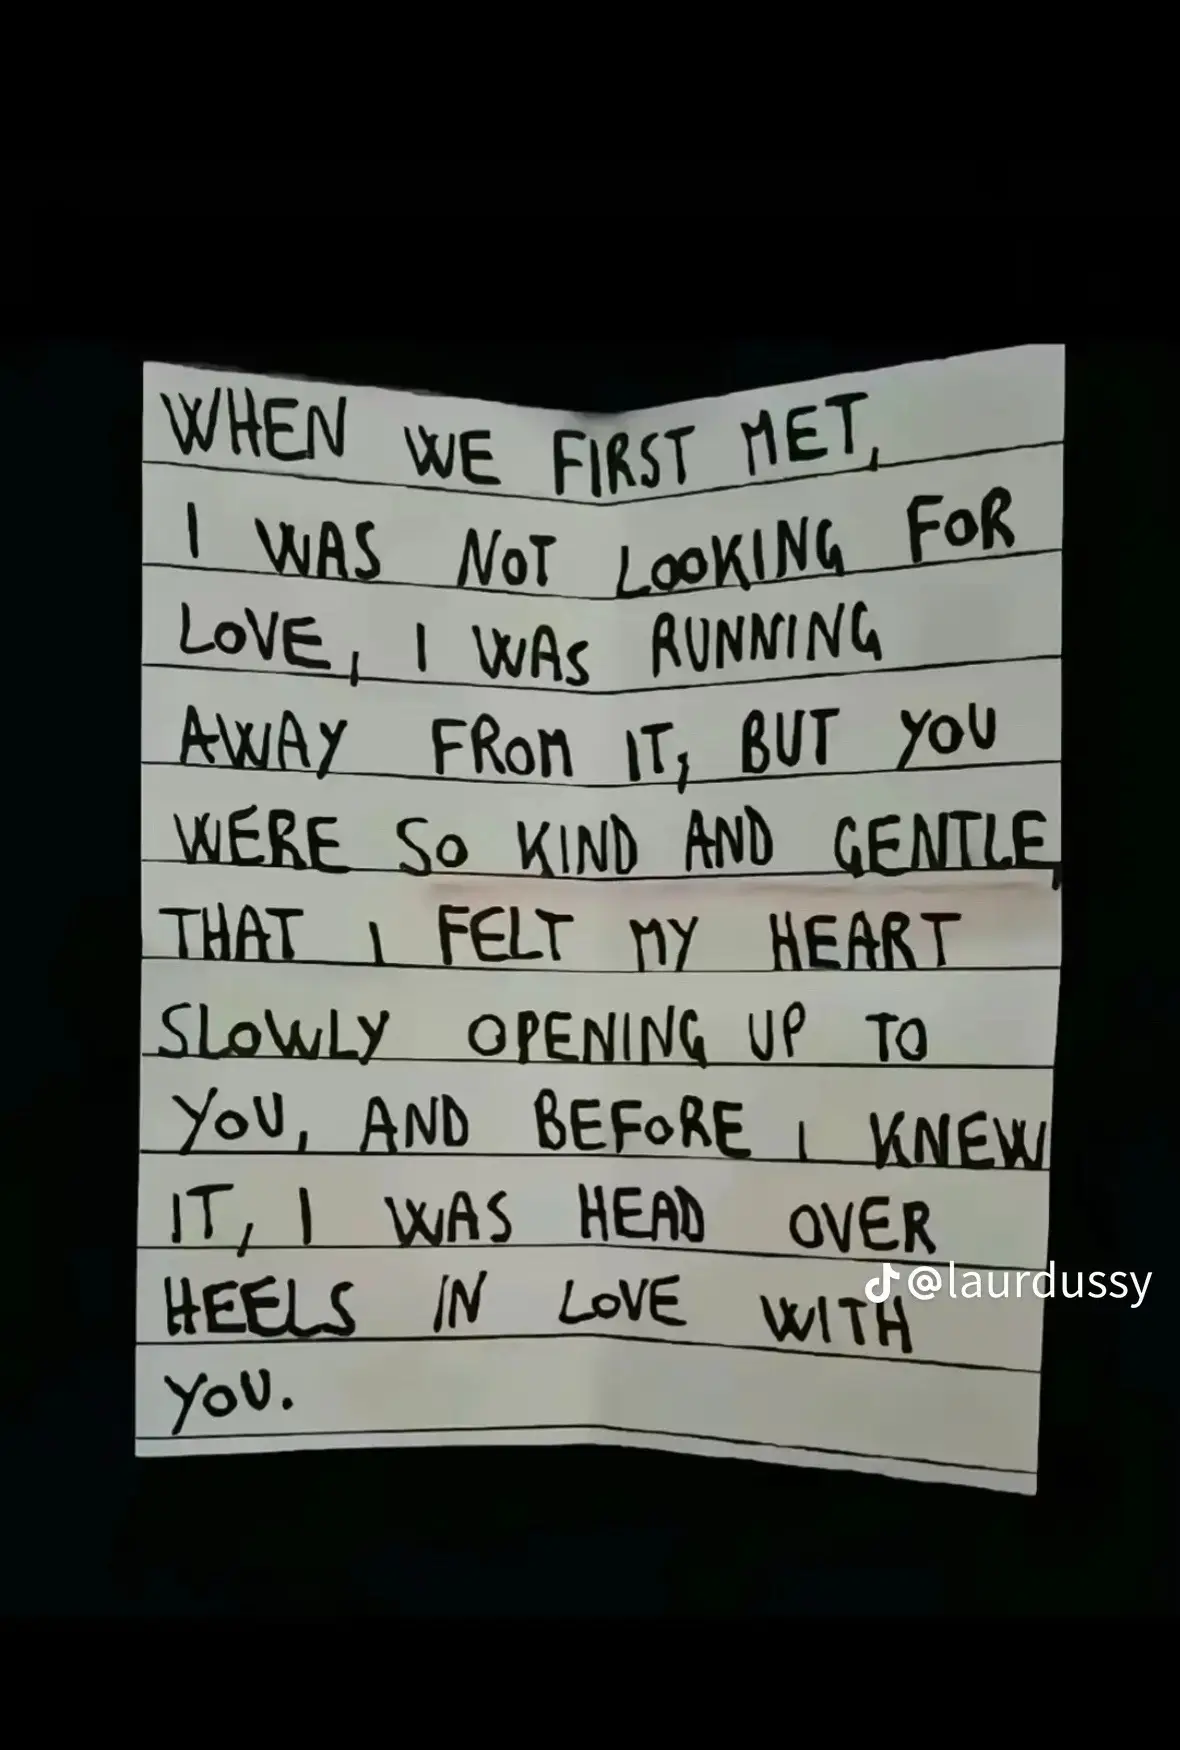 WHEN WE FIRST MET,
I WAS NOT LOOKING FOR
LOVE, I WAS RUNNING
AWAY FROM IT, BUT YOU
WERE SO KIND AND GENTLE,
THAT I FELT MY HEART
SLOWLY OPENING UP TO
YOU, AND BEFORE I KNEW
IT, I WAS HEAD OVER
HEELS IN LOVE WITH
YOU.
@laurdussy